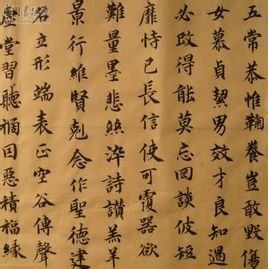 五常恭惟鞠養豈敢毀傷
女慕貞絜男效才良知過
必改得能莫忘罔談彼短
靡恃己長信使可覆器欲
難量墨悲絲染詩讚羔羊
景行維賢剋念作聖德建
名立形端表正空谷傳聲
堂習聽禍因惡積福緣